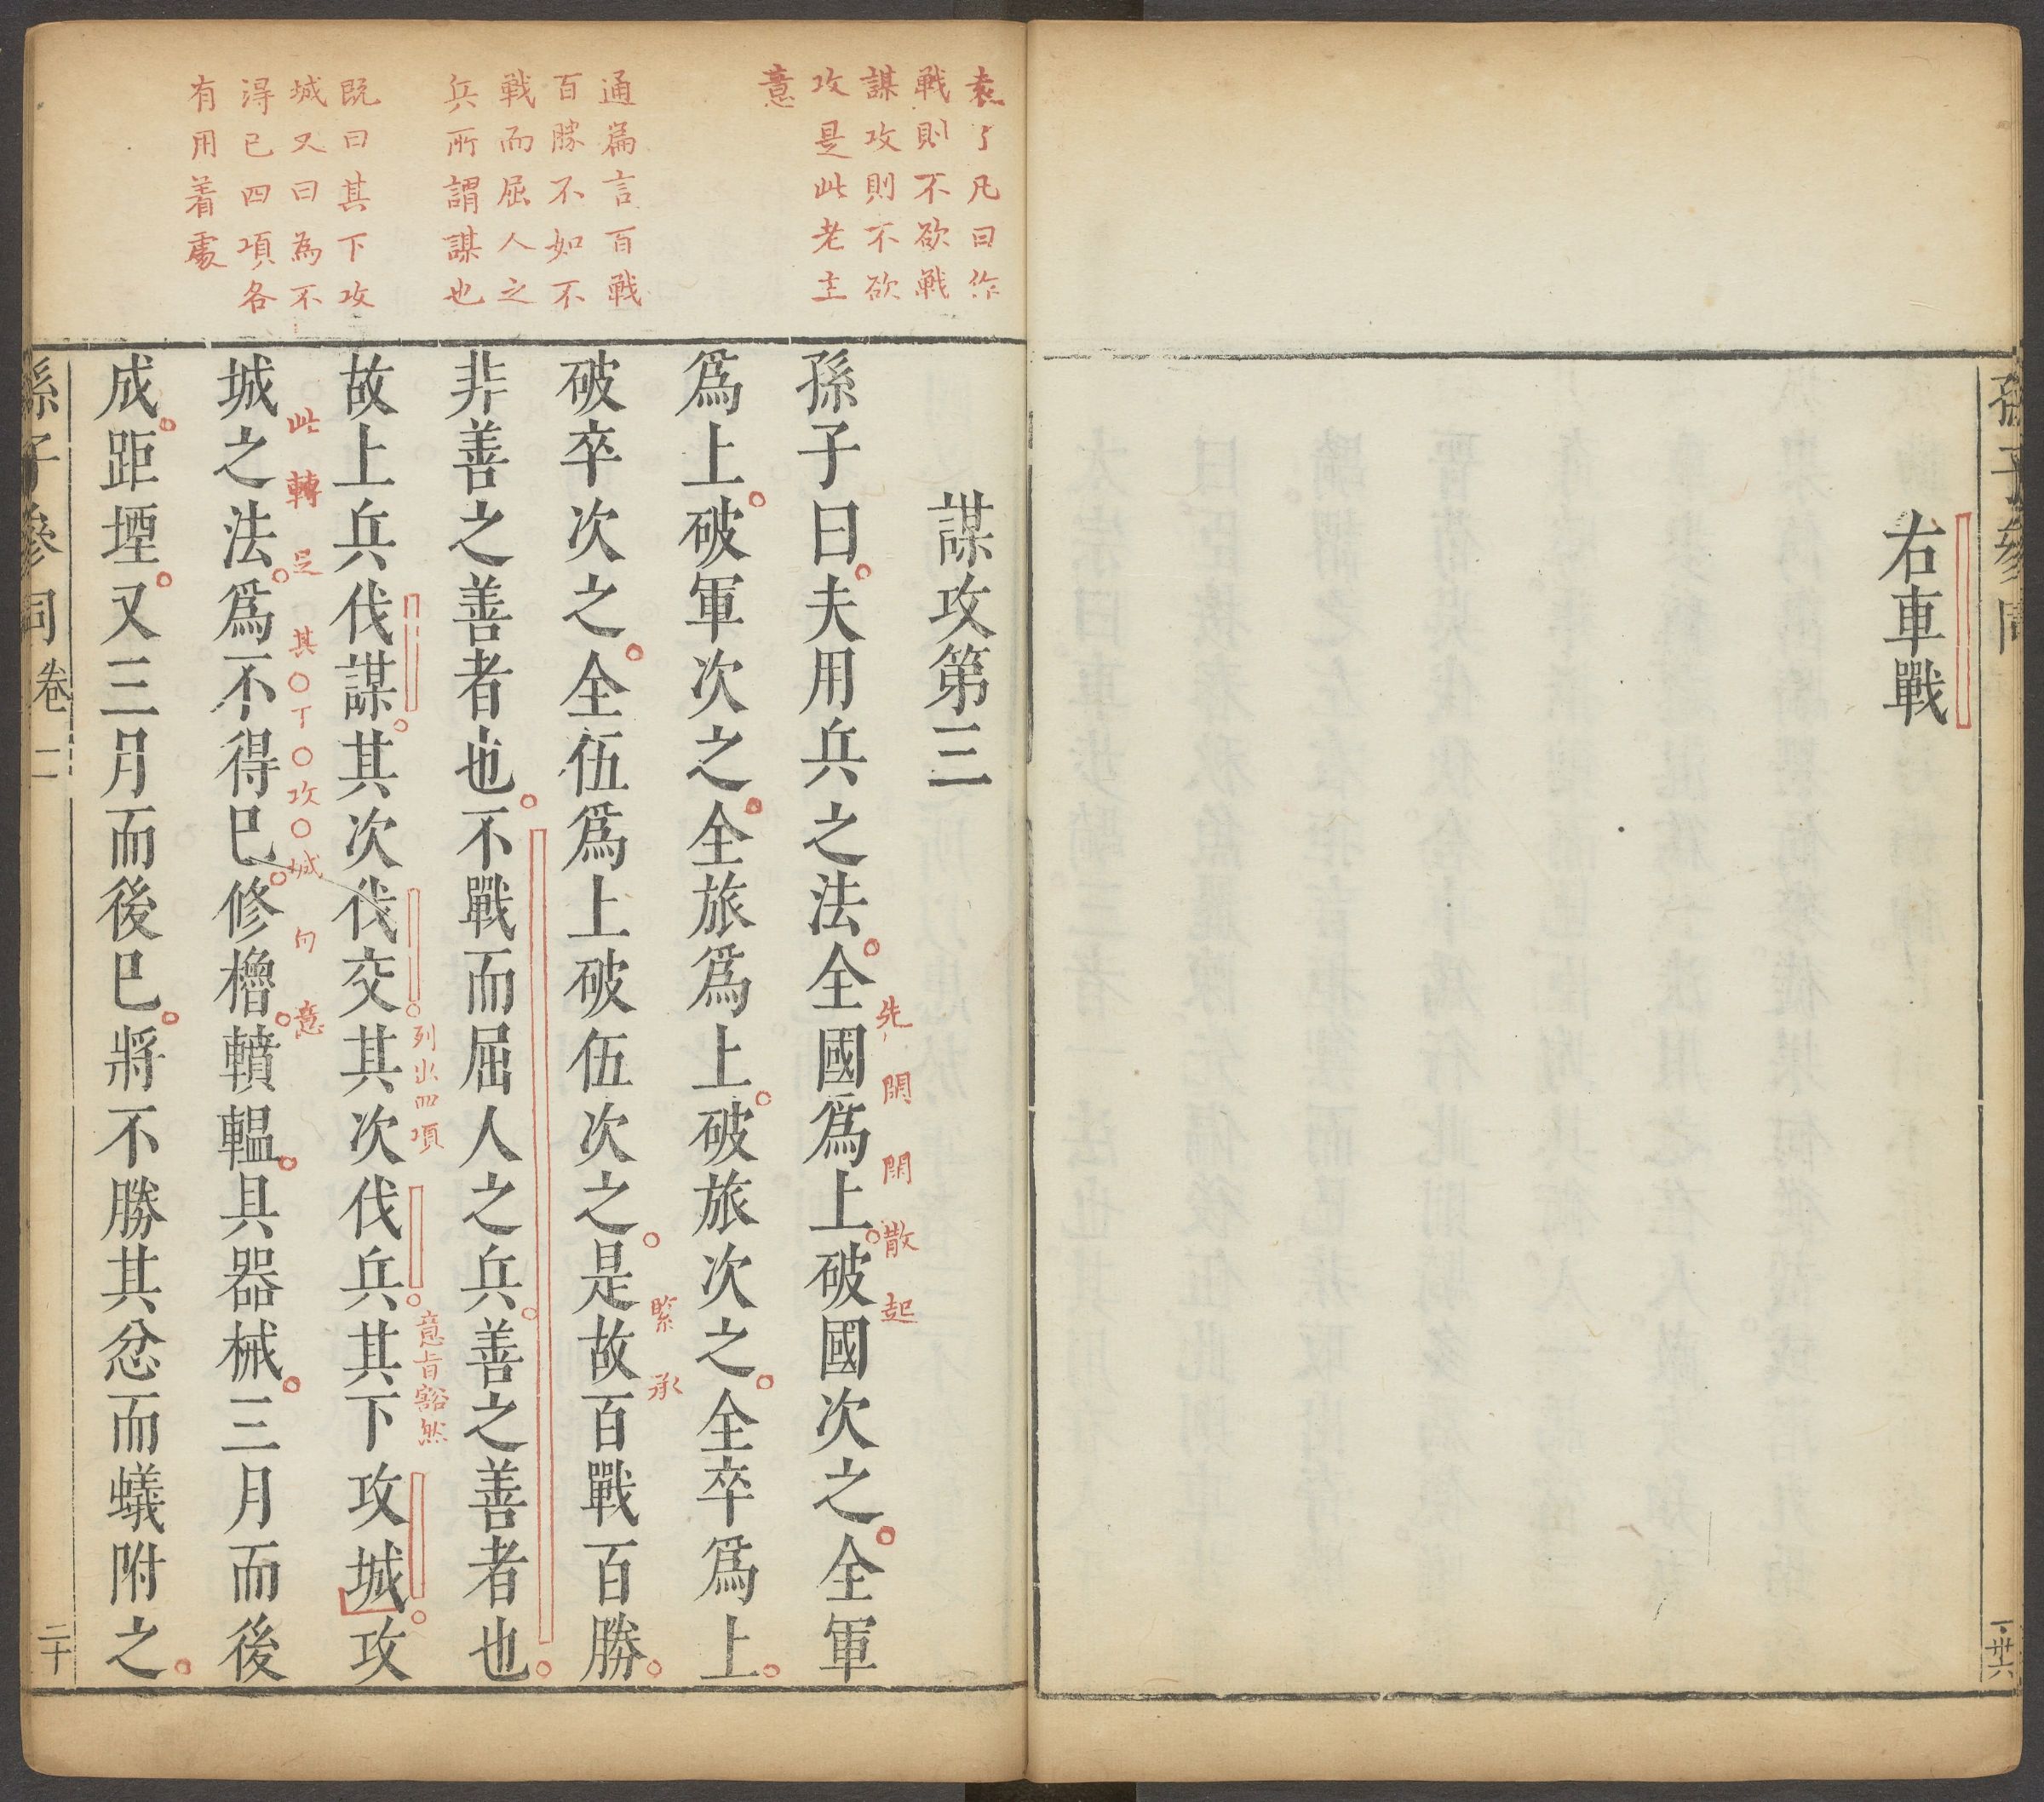 孫子參同
卅六
右車戰
袁了凡曰作
戰則不欲戰
謀攻則不欲
攻是此老主
意
通篇言百戰
百勝不如不
戰而屈人之
兵所謂謀也
既曰其下攻
城又曰為不
得已四項各
有用着處
謀攻第三
孫子曰夫用兵之法全國爲上破國次之全軍
先開閑散起
爲上破軍次之全旅爲上破旅次之全卒爲上
破卒次之全伍爲上破伍次之是故百戰百勝
緊承
非善之善者也不戰而屈人之兵善之善者也
故上兵伐謀其次伐交其次伐兵其下攻城攻
列出四項
意旨豁然
城之法爲不得已修櫓轒轀具器械三月而後
此轉足其下攻城句意
成距堙又三月而後已將不勝其忿而蟻附之
孫子參同卷二
二十